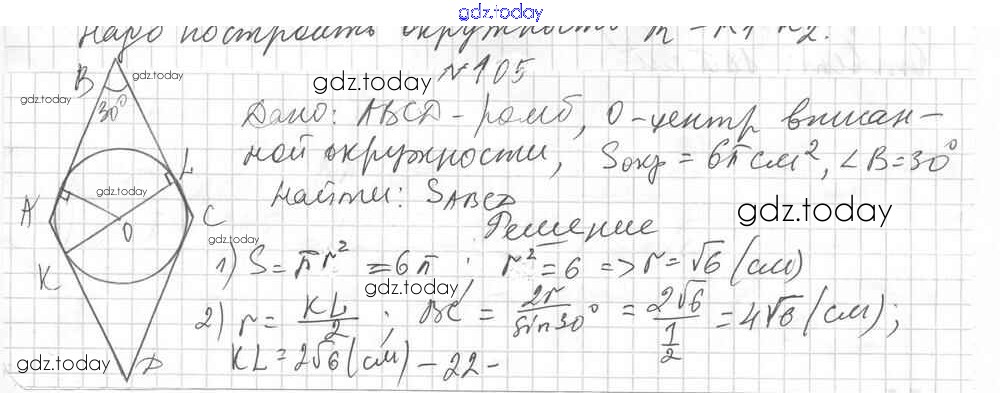 gdz.today
надо построить окружность
gdz.today
№105
gdz.today
B
30°
gdz.today
Дано: ABCD - ромб, O - центр вписан-
ной окружности, Sокр = 6π см², ∠B = 30°
Найти: SABCD
gdz.today
Решение
L
gdz.today
A
O
C
K
D
gdz.today
1) S = πr² = 6π ; r² = 6 => r = √6 (см)
gdz.today
2) r = KL/2 ; BC = 2r/sin30° = 2√6/(1/2) = 4√6 (см);
KL = 2√6 (см) - 22 -
gdz.today